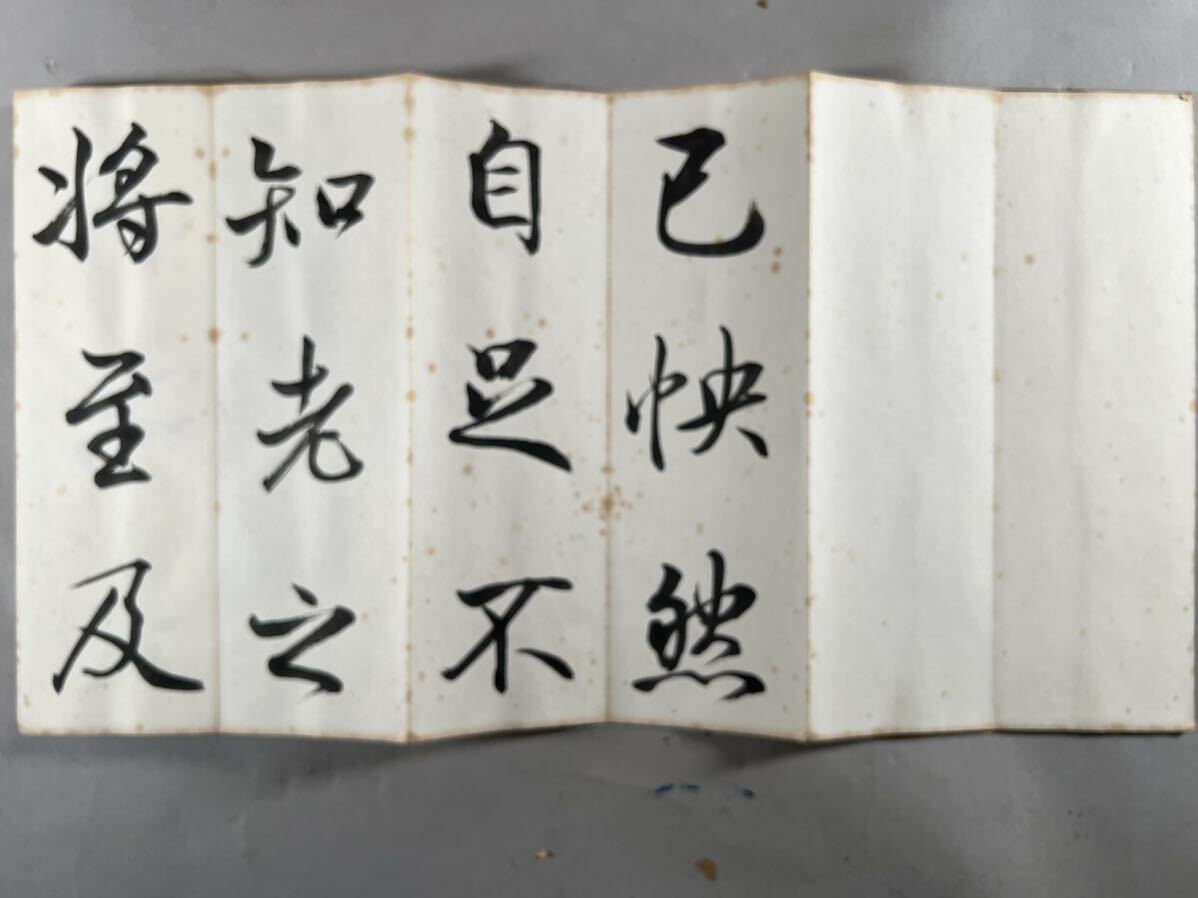 已怏然
自足不
知老之
将至及